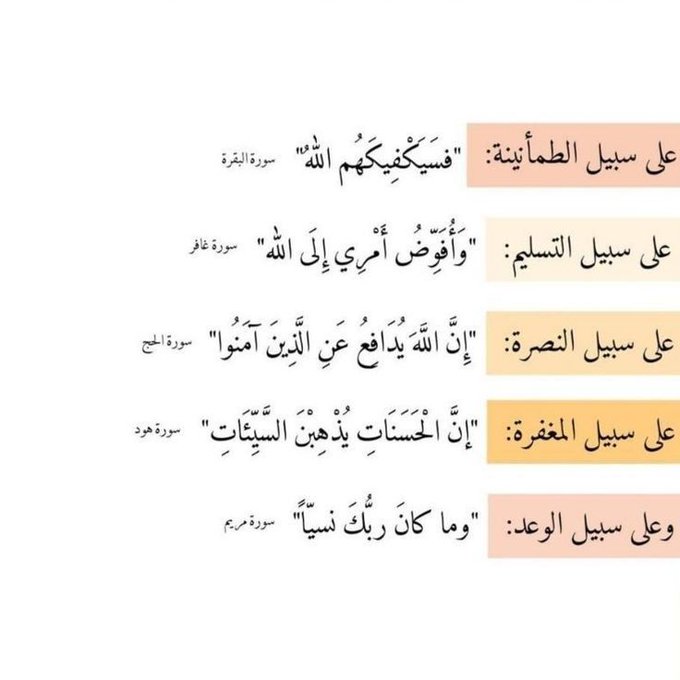 على سبيل الطمأنينة: "فَسَيَكْفِيكَهُم اللهُ" سورة البقرة
على سبيل التسليم: "وَأُفَوِّضُ أَمْرِي إِلَى الله" سورة غافر
على سبيل النصرة: "إِنَّ اللَّهَ يُدَافِعُ عَنِ الَّذِينَ آمَنُوا" سورة الحج
على سبيل المغفرة: "إنَّ الْحَسَنَاتِ يُذْهِبْنَ السَّيِّئَاتِ" سورة هود
وعلى سبيل الوعد: "وما كانَ ربُّكَ نسيّاً" سورة مريم